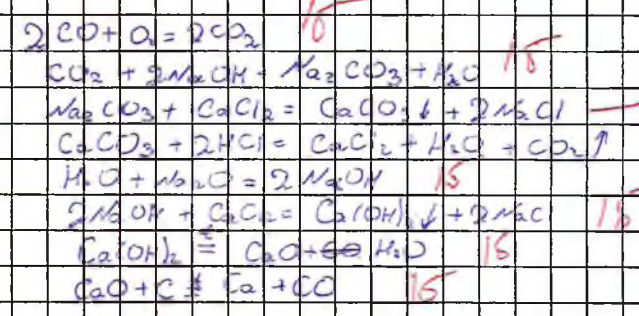 2CO + O₂ = 2CO₂ 1б
CO₂ + 2NaOH = Na₂CO₃ + H₂O 1б
Na₂CO₃ + CaCl₂ = CaCO₃↓ + 2NaCl
CaCO₃ + 2HCl = CaCl₂ + H₂O + CO₂↑
H₂O + Na₂O = 2NaOH 1б
2NaOH + CaCl₂ = Ca(OH)₂↓ + 2NaCl 1б
Ca(OH)₂ = CaO + H₂O 1б
CaO + C = Ca + CO 1б